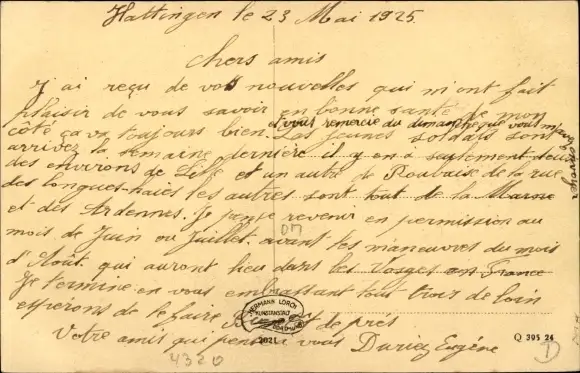 Hattingen le 23 Mai 1925.
Chers amis
J ai reçu de vos nouvelles qui m'ont fait
plaisir de vous savoir en bonne santé de mon
côté ça va toujours bien. Les jeunes soldats sont
et vous remercie du dimanche que vous m'avez
arrivez la semaine dernière il y en a seulement deux
des environs de Lille et un autre de Roubaix de la rue
des longues-haies les autres sont tout de la Marne
et des Ardennes. Je pense revenir en permission au
mois de Juin ou Juillet. avant les manœuvres du mois
d'Août. qui auront lieu dans les Vosges en France
Je termine en vous embrassant tout trois de loin
espérons de le faire de près
Votre amis qui pense à vous Duriez Eugène
HERMANN LORCH
KUNSTANSTALT
DORTMUND
2021
Q 395 24
4320
D